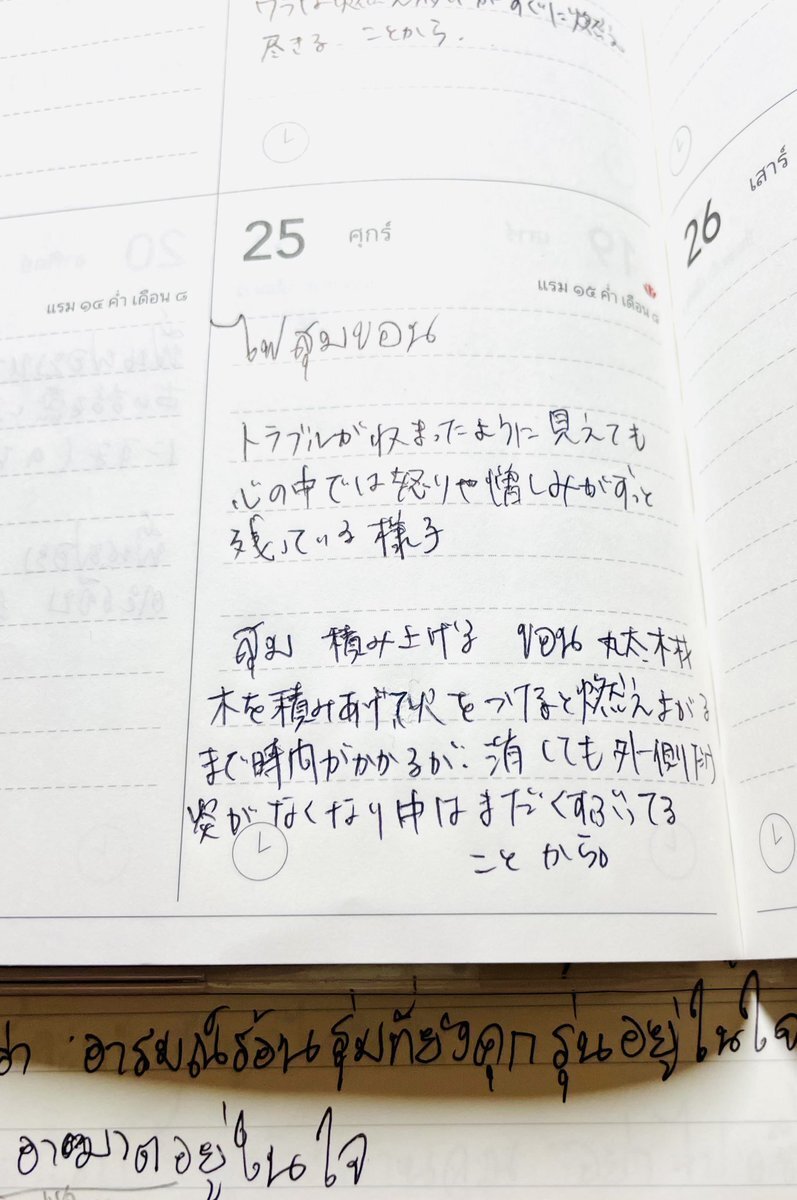 尽きる ことから.
25 ศุกร์
26 เสาร์
แรม ๑๔ ค่ำ เดือน ๘
แรม ๑๕ ค่ำ เดือน ๘
ไฟสุมขอน
トラブルが収まったように見えても
心の中では怒りや憎しみがずっと
残っている様子
สุม 積み上げる ขอน 丸太.木材
木を積みあげて火をつけると燃えあがる
まで時間がかかるが. 消しても外側だけ
炎がなくなり中はまだくすぶってる
ことから。
อารมณ์ร้อนรุ่มที่ยังคุกรุ่นอยู่ในใจ
อาฆาตอยู่ในใจ